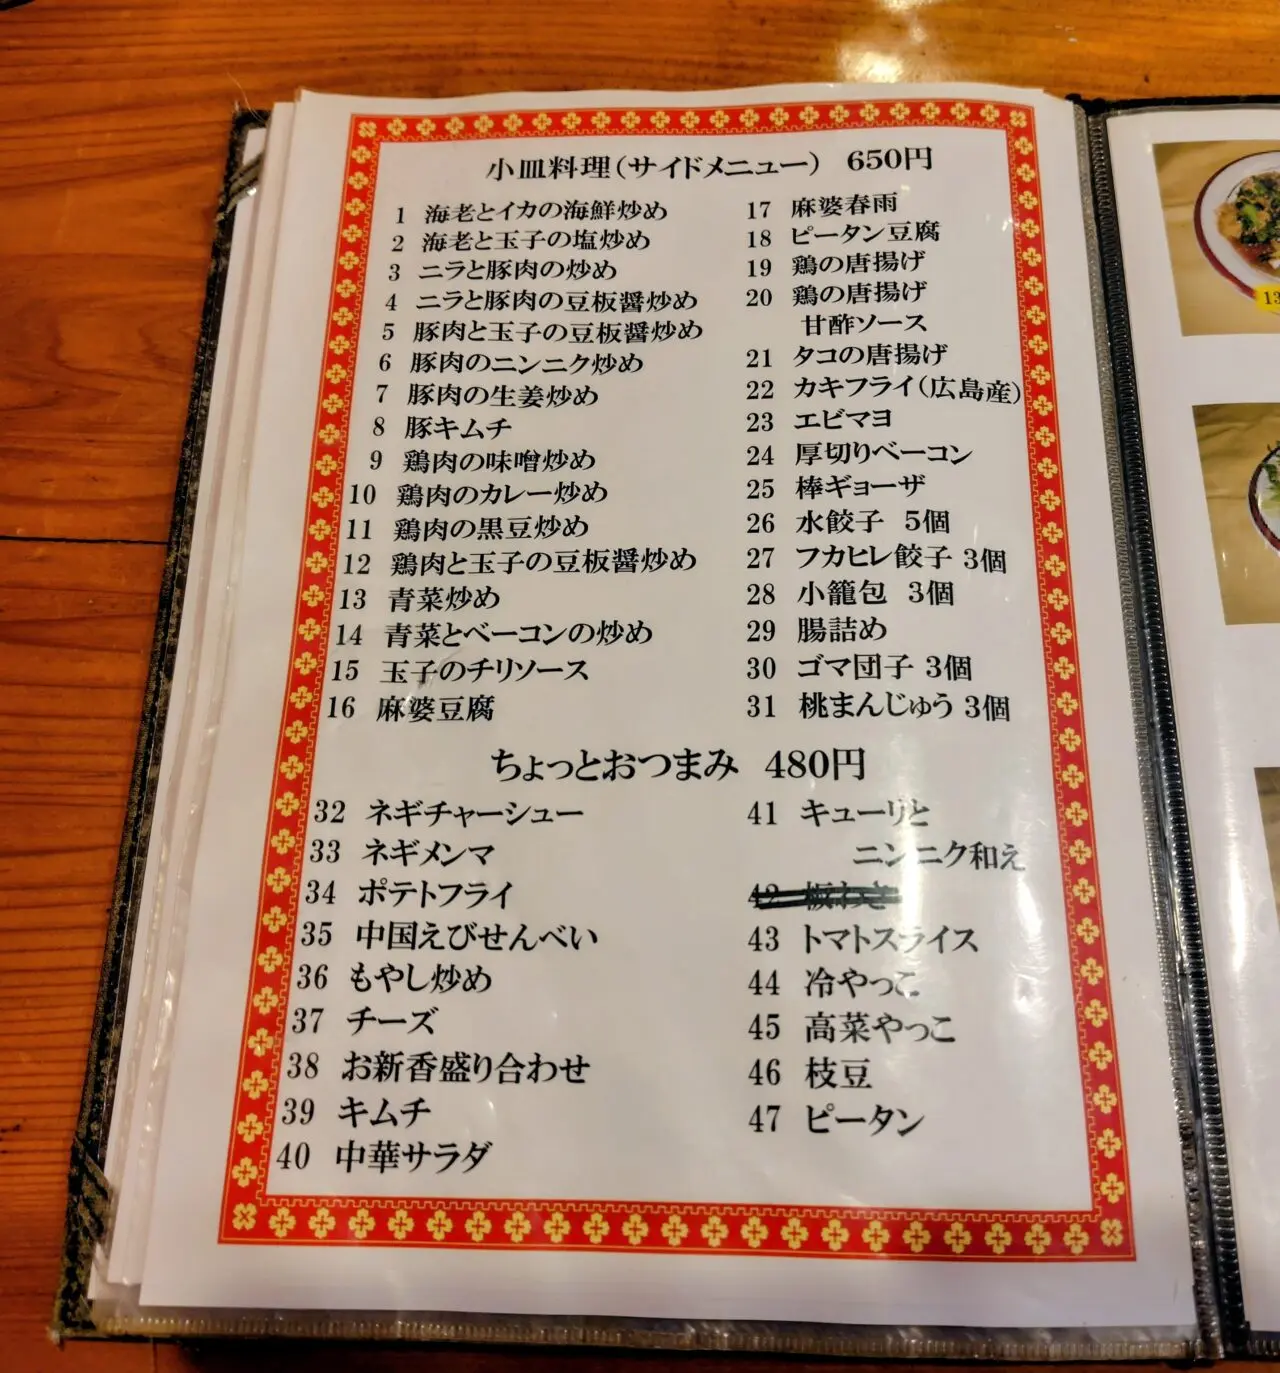 小皿料理(サイドメニュー) 650円
1 海老とイカの海鮮炒め
2 海老と玉子の塩炒め
3 ニラと豚肉の炒め
4 ニラと豚肉の豆板醤炒め
5 豚肉と玉子の豆板醤炒め
6 豚肉のニンニク炒め
7 豚肉の生姜炒め
8 豚キムチ
9 鶏肉の味噌炒め
10 鶏肉のカレー炒め
11 鶏肉の黒豆炒め
12 鶏肉と玉子の豆板醤炒め
13 青菜炒め
14 青菜とベーコンの炒め
15 玉子のチリソース
16 麻婆豆腐
17 麻婆春雨
18 ピータン豆腐
19 鶏の唐揚げ
20 鶏の唐揚げ
甘酢ソース
21 タコの唐揚げ
22 カキフライ(広島産)
23 エビマヨ
24 厚切りベーコン
25 棒ギョーザ
26 水餃子 5個
27 フカヒレ餃子 3個
28 小籠包 3個
29 腸詰め
30 ゴマ団子 3個
31 桃まんじゅう 3個
ちょっとおつまみ 480円
32 ネギチャーシュー
33 ネギメンマ
34 ポテトフライ
35 中国えびせんべい
36 もやし炒め
37 チーズ
38 お新香盛り合わせ
39 キムチ
40 中華サラダ
41 キューリと
ニンニク和え
42 板わさ
43 トマトスライス
44 冷やっこ
45 高菜やっこ
46 枝豆
47 ピータン